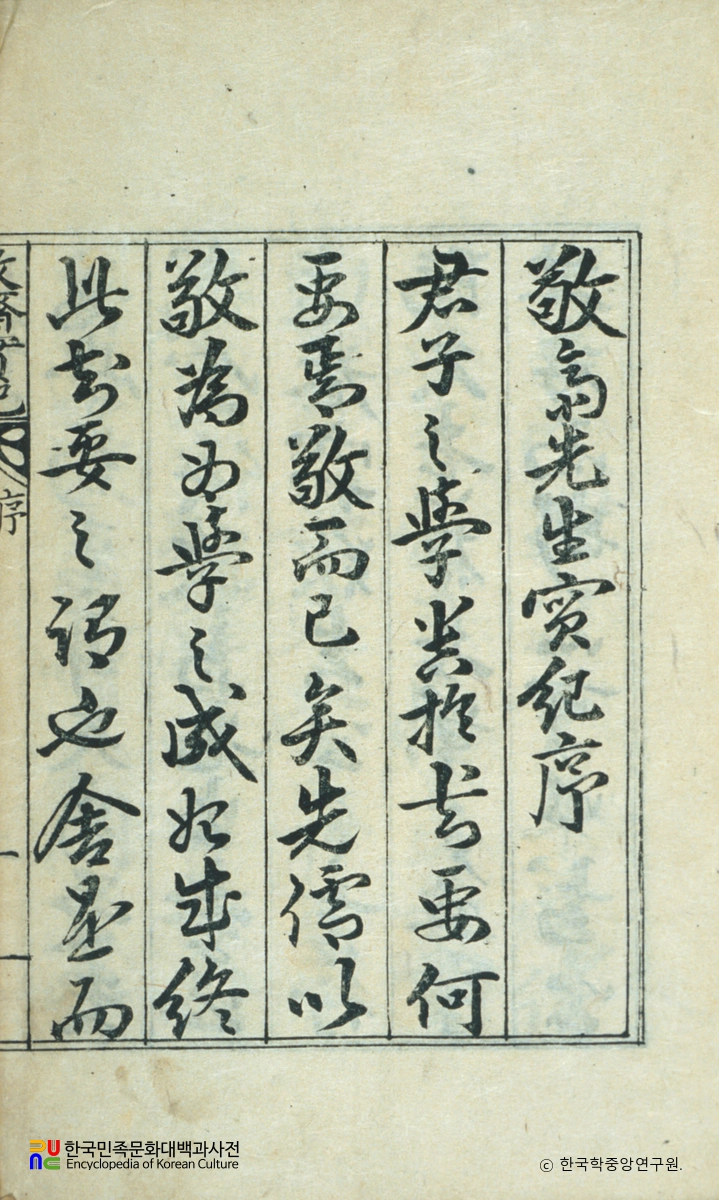 敬齋先生實紀序
君子之學貴於知要何
要焉敬而已矣先儒以
敬為為學之成始成終
此知要之謂也舍是而
敬齋實紀 序 一
한국민족문화대백과사전
Encyclopedia of Korean Culture
ⓒ 한국학중앙연구원.